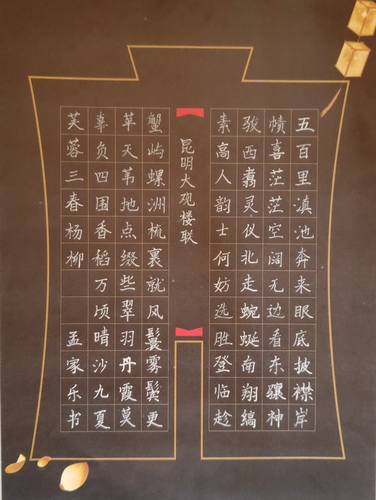 五百里滇池奔来眼底披襟岸
帻喜茫茫空阔无边看东骧神
骏西翥灵仪北走蜿蜒南翔缟
素高人韵士何妨选胜登临趁
昆明大观楼联
蟹屿螺洲梳裹就风鬟雾鬓更
苹天苇地点缀些翠羽丹霞莫
辜负四围香稻万顷晴沙九夏
芙蓉三春杨柳
孟家乐书